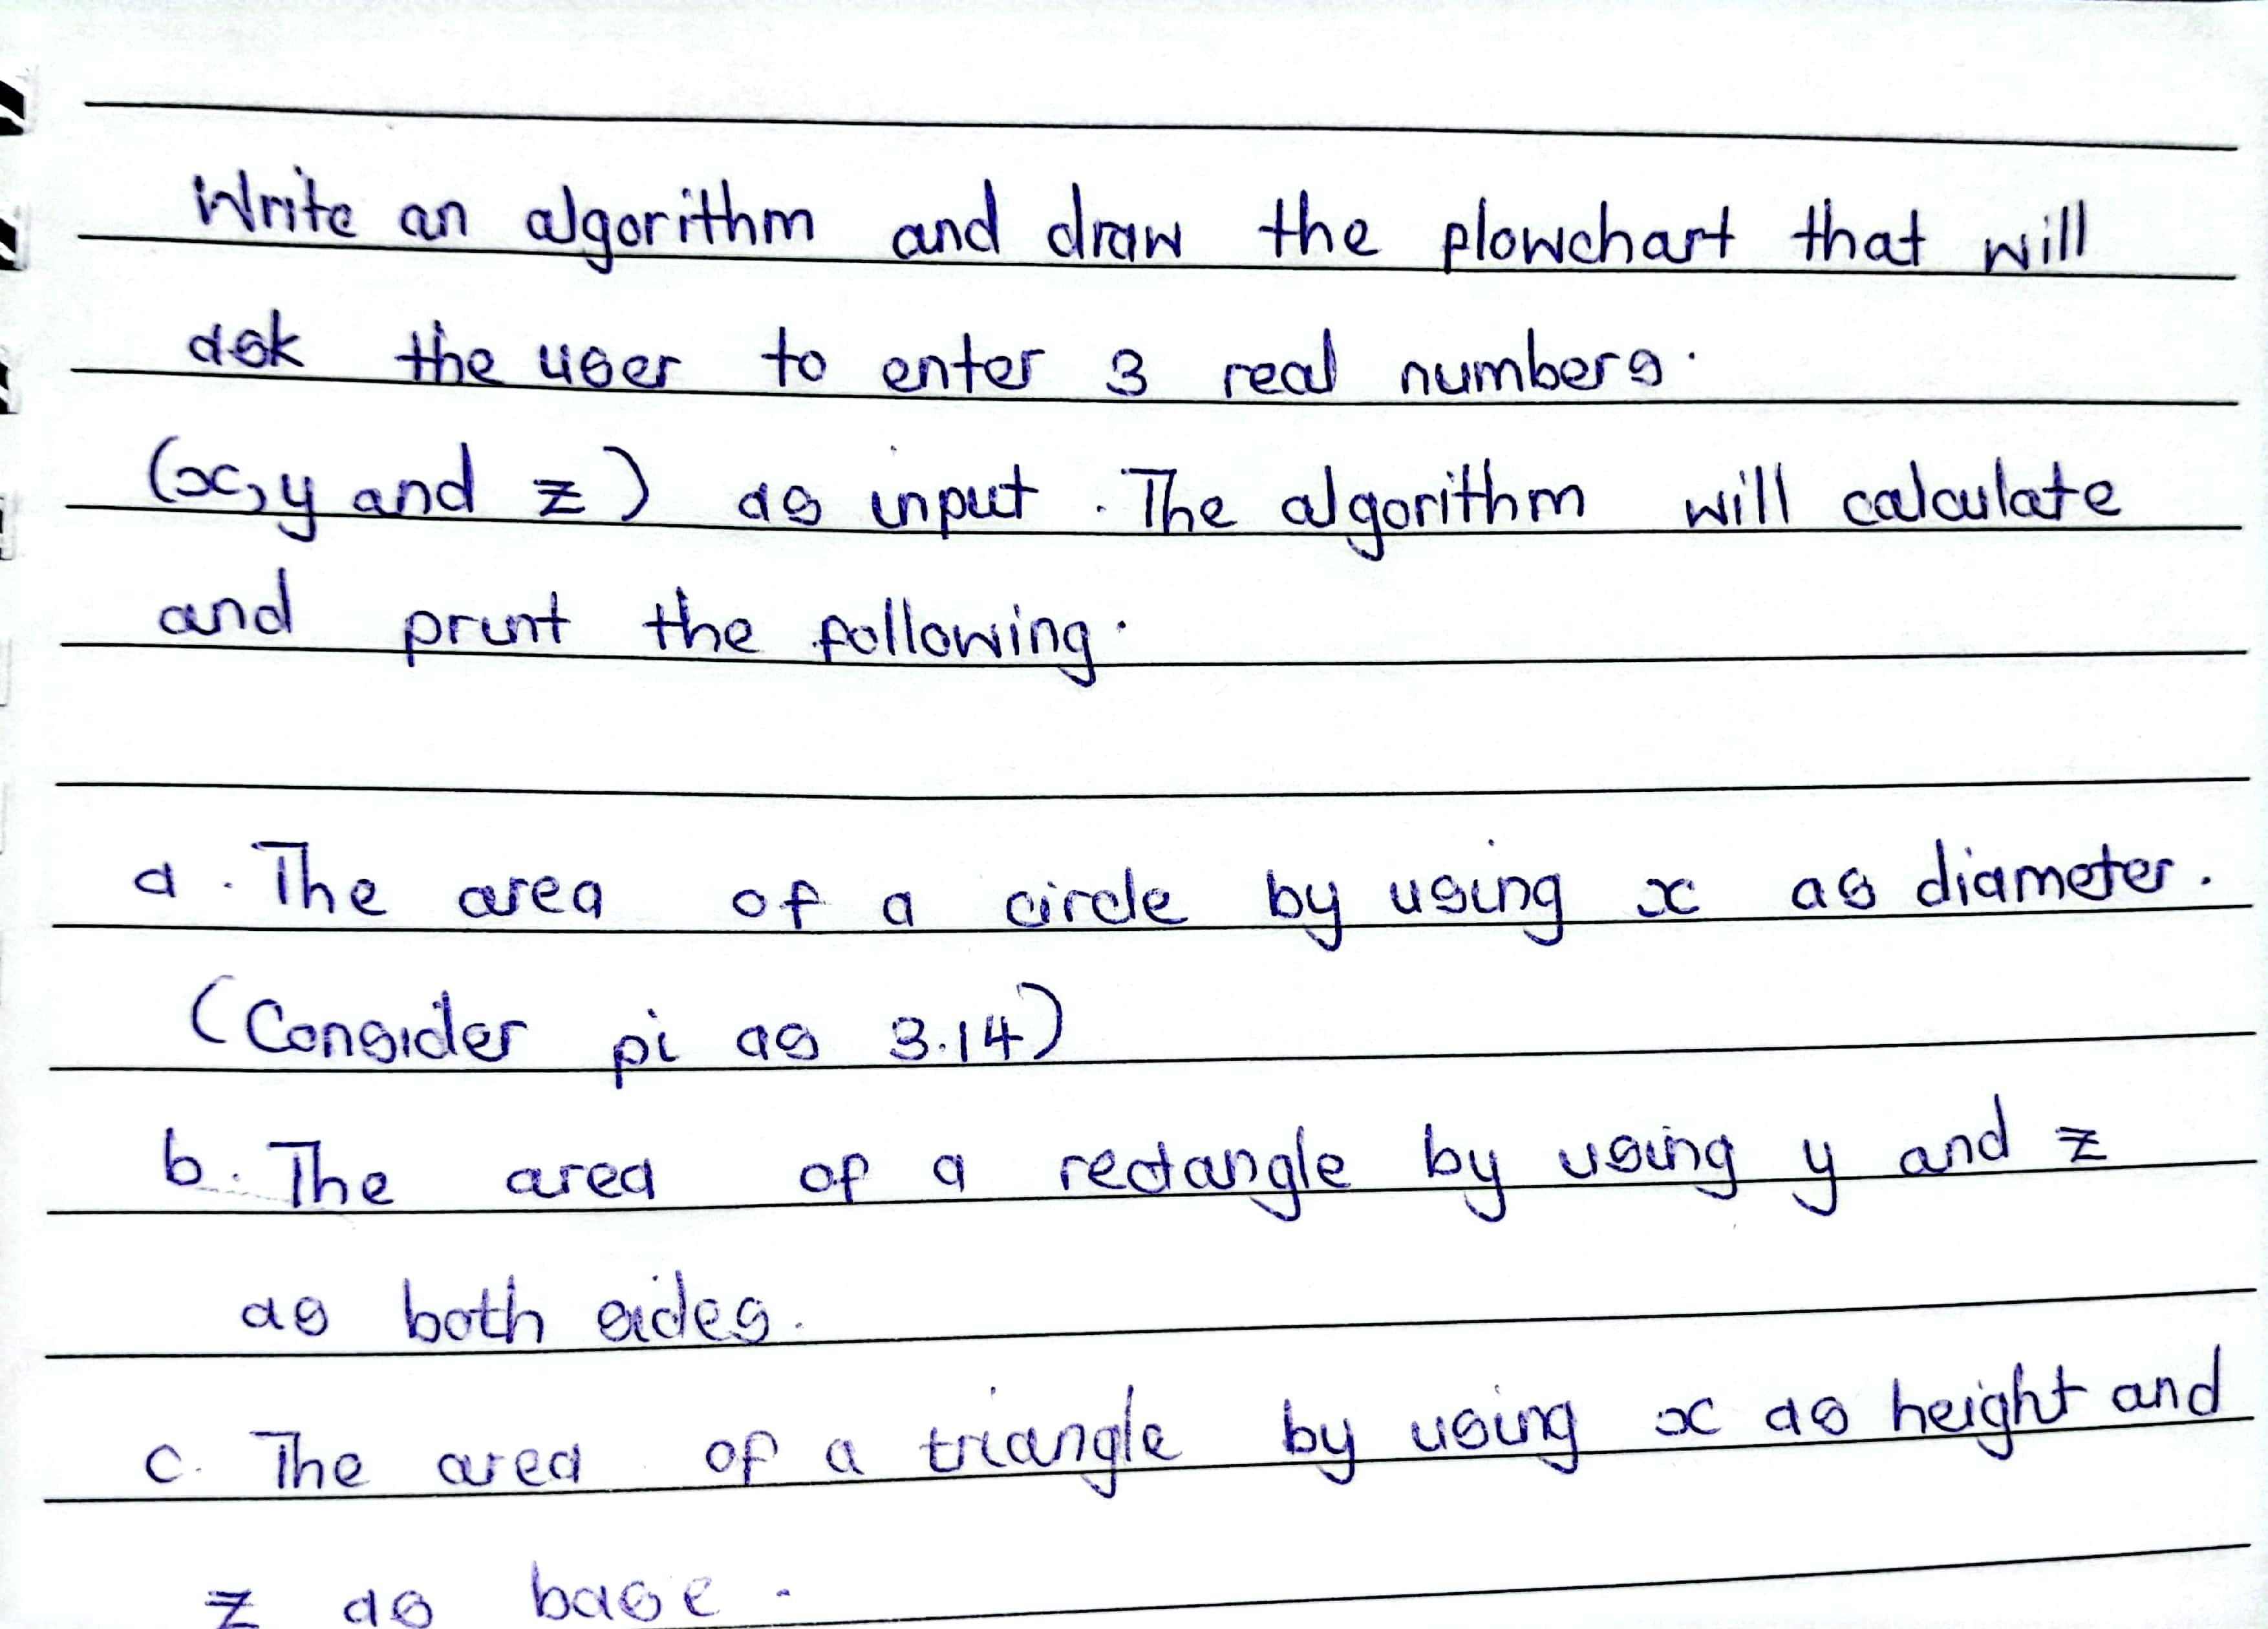 Write an algorithm and draw the plowchart that will
ask the user to enter 3 real numbers.
(x, y and z) as input. The algorithm will calculate
and print the following.
a. The area of a circle by using x as diameter.
(Consider pi as 3.14)
b. The area of a rectangle by using y and z
as both sides.
c. The area of a triangle by using x as height and
z as base.